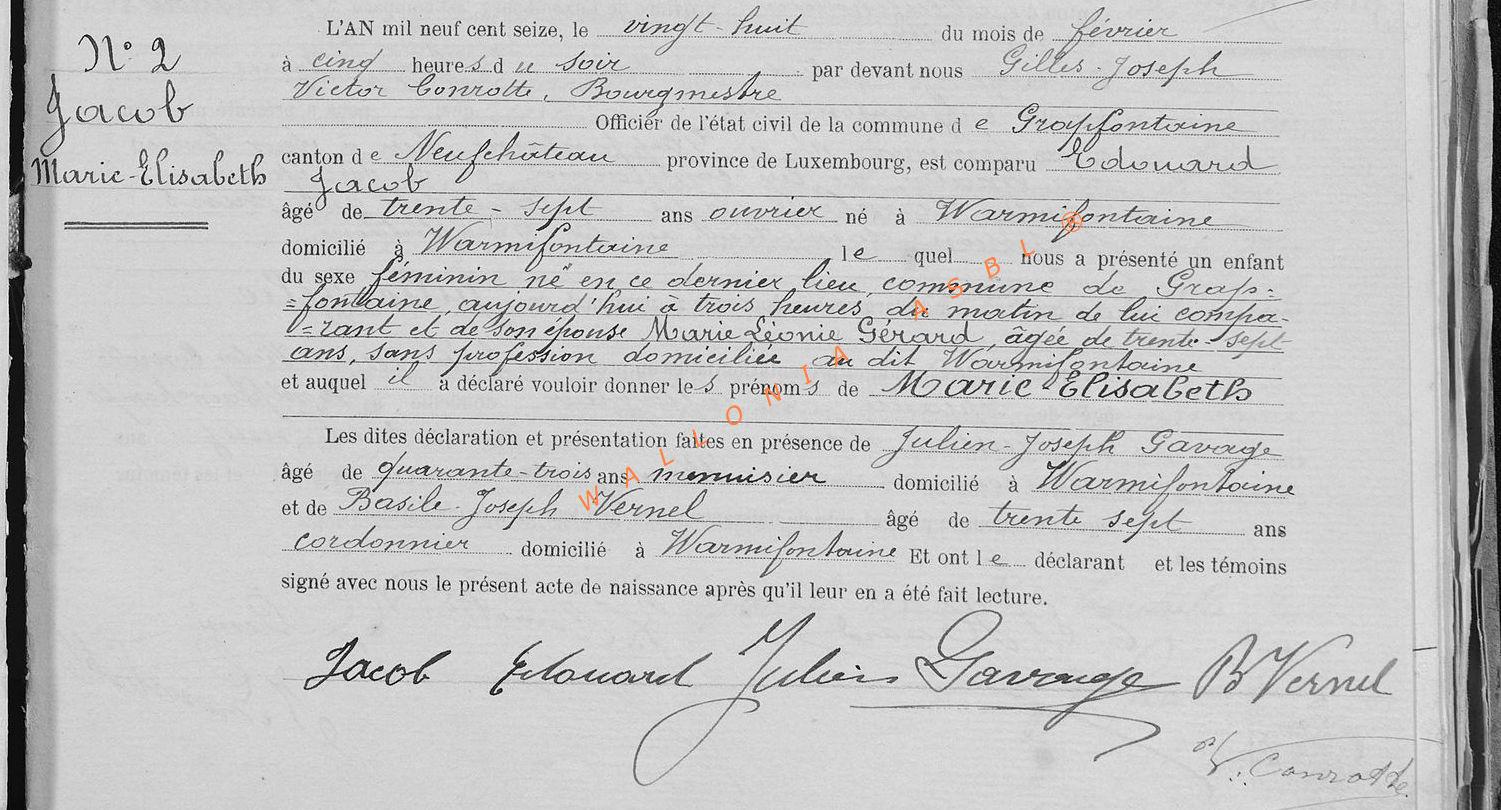 N° 2
Jacob
Marie-Elisabeth
L'AN mil neuf cent seize, le vingt-huit du mois de février
à cinq heures du soir par devant nous Gilles-Joseph
Victor Conrotte, Bourgmestre
Officier de l'état civil de la commune de Grapfontaine
canton de Neufchâteau province de Luxembourg, est comparu Edouard
Jacob
âgé de trente-sept ans ouvrier né à Warmifontaine
domicilié à Warmifontaine lequel nous a présenté un enfant
du sexe féminin né en ce dernier lieu, commune de Grap=
=fontaine, aujourd'hui à trois heures du matin de lui compa-
=rant et de son épouse Marie Léonie Gérard, âgée de trente sept
ans, sans profession domiciliée au dit Warmifontaine
et auquel il a déclaré vouloir donner les prénoms de Marie Elisabeth
Les dites déclaration et présentation faites en présence de Julien-Joseph Gavage
âgé de quarante-trois ans menuisier domicilié à Warmifontaine
et de Basile-Joseph Vernel âgé de trente sept ans
cordonnier domicilié à Warmifontaine Et ont le déclarant et les témoins
signé avec nous le présent acte de naissance après qu'il leur en a été fait lecture.
Jacob Edouard Julien Gavage B Vernel
V. Conrotte
WALLONIA ASBL ®